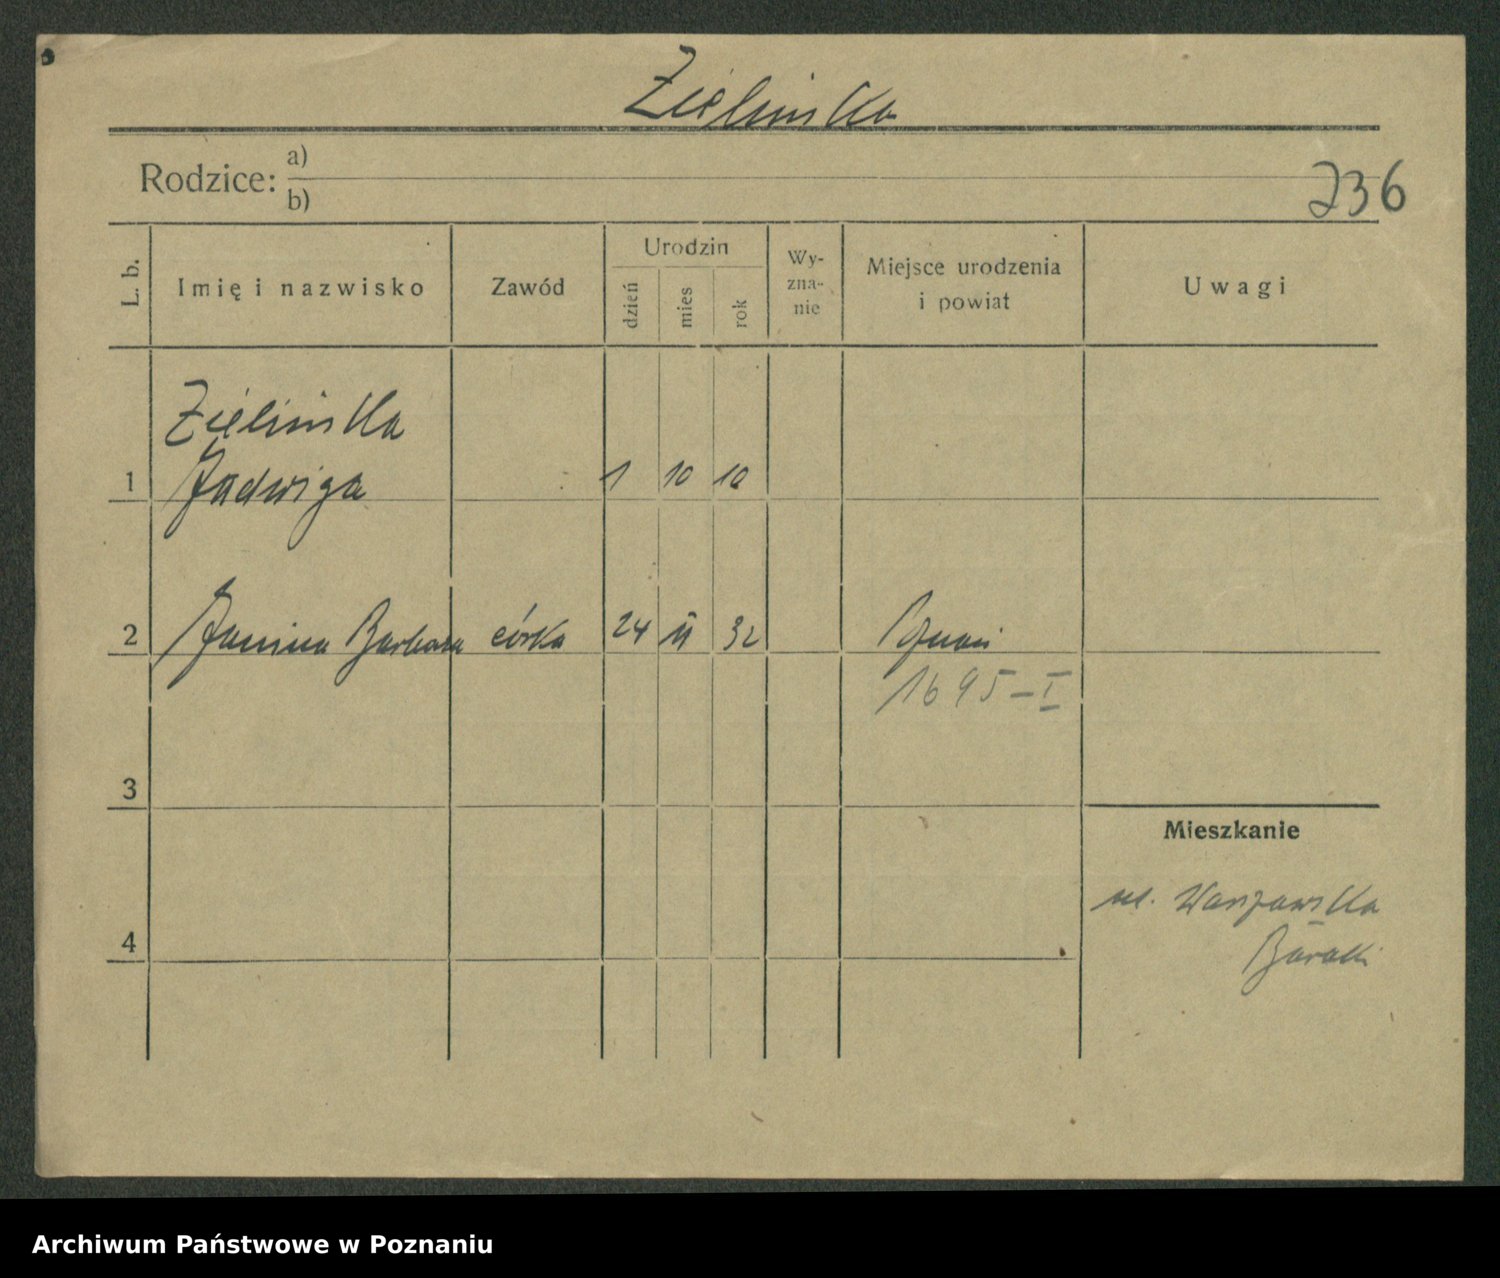 Zielińska
Rodzice: a)
b)
236
L. b.
Imię i nazwisko
Zawód
Urodzin
dzień
mies
rok
Wy-
zna-
nie
Miejsce urodzenia
i powiat
Uwagi
Zielińska
1 Jadwiga 1 10 10
2 Janina Barbara córka 24 II 32 Poznań
1695-I
3
Mieszkanie
ul. Warszawska
Baraki
4
Archiwum Państwowe w Poznaniu